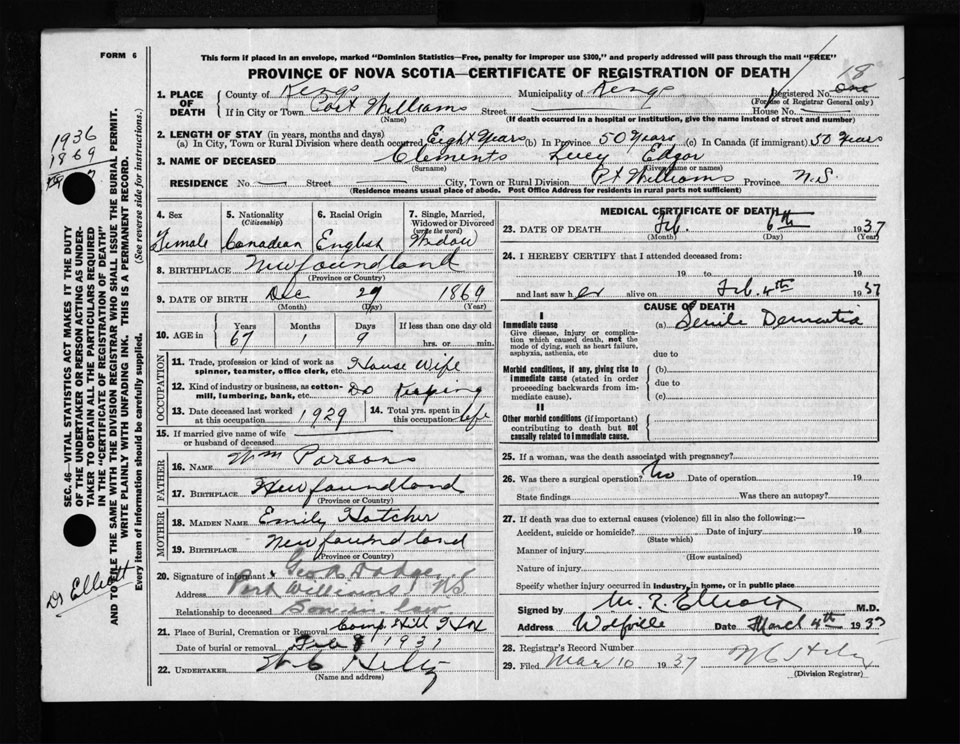 FORM 6
This form if placed in an envelope, marked "Dominion Statistics—Free, penalty for improper use $300," and properly addressed will pass through the mail "FREE"
PROVINCE OF NOVA SCOTIA—CERTIFICATE OF REGISTRATION OF DEATH
1. PLACE OF DEATH County of Kings Municipality of Kings Registered No. 18
(For use of Registrar General only)
If in City or Town Port Williams Street House No.
(Name) (If death occurred in a hospital or institution, give the name instead of street and number)
2. LENGTH OF STAY (in years, months and days)
(a) In City, Town or Rural Division where death occurred Eight Years (b) In Province 50 Years (c) In Canada (if immigrant) 50 Years
3. NAME OF DECEASED Clements Lucy Edgar
(Surname) (Given name or names)
RESIDENCE No. Street City, Town or Rural Division Pt Williams Province N.S.
(Residence means usual place of abode. Post Office Address for residents in rural parts not sufficient)
4. Sex Female
5. Nationality (Citizenship) Canadian
6. Racial Origin English
7. Single, Married, Widowed or Divorced (write the word) Widow
8. BIRTHPLACE Newfoundland
(Province or Country)
9. DATE OF BIRTH Dec 29 1869
(Month) (Day) (Year)
10. AGE in Years Months Days If less than one day old
67 1 9 hrs. or min.
OCCUPATION
11. Trade, profession or kind of work as spinner, teamster, office clerk, etc. House Wife
12. Kind of industry or business, as cotton-mill, lumbering, bank, etc. Do Keeping
13. Date deceased last worked at this occupation 1929
14. Total yrs. spent in this occupation life
15. If married give name of wife or husband of deceased
FATHER
16. NAME Wm Parsons
17. BIRTHPLACE Newfoundland
(Province or Country)
MOTHER
18. MAIDEN NAME Emily Hatcher
19. BIRTHPLACE Newfoundland
(Province or Country)
20. Signature of informant Geo A Dodge
Address Port Williams NS
Relationship to deceased Son in law
21. Place of Burial, Cremation or Removal Camp Hill Hfx
Date of burial or removal Feb 8 1937
22. UNDERTAKER
(Name and address)
MEDICAL CERTIFICATE OF DEATH
23. DATE OF DEATH Feb. 6th 1937
(Month) (Day) (Year)
24. I HEREBY CERTIFY that I attended deceased from:
19 to 19
and last saw her alive on Feb. 4th 1937
CAUSE OF DEATH
I
Immediate cause (a) Senile Dementia
Give disease, injury or complication which caused death, not the mode of dying, such as heart failure, asphyxia, asthenia, etc due to
Morbid conditions, if any, giving rise to immediate cause (stated in order proceeding backwards from immediate cause). (b)
due to
(c)
II
Other morbid conditions (if important) contributing to death but not causally related to immediate cause.
25. If a woman, was the death associated with pregnancy?
26. Was there a surgical operation? No Date of operation 19
State findings Was there an autopsy?
27. If death was due to external causes (violence) fill in also the following:—
Accident, suicide or homicide? Date of injury 19
(State which)
Manner of injury
(How sustained)
Nature of injury
Specify whether injury occurred in industry, in home, or in public place
Signed by M. R. Elliott M.D.
Address Wolfville Date March 4th 1937
28. Registrar's Record Number
29. Filed Mar 10 1937
(Division Registrar)
SEC. 46—VITAL STATISTICS ACT MAKES IT THE DUTY
OF THE UNDERTAKER OR PERSON ACTING AS UNDER-
TAKER TO OBTAIN ALL THE PARTICULARS REQUIRED
IN THE "CERTIFICATE OF REGISTRATION OF DEATH"
AND TO FILE THE SAME WITH THE DIVISION REGISTRAR WHO SHALL ISSUE THE BURIAL PERMIT.
WRITE PLAINLY WITH UNFADING INK. THIS IS A PERMANENT RECORD.
Every item of information should be carefully supplied. (See reverse side for instructions.)
1936
1869
Dr Elliott